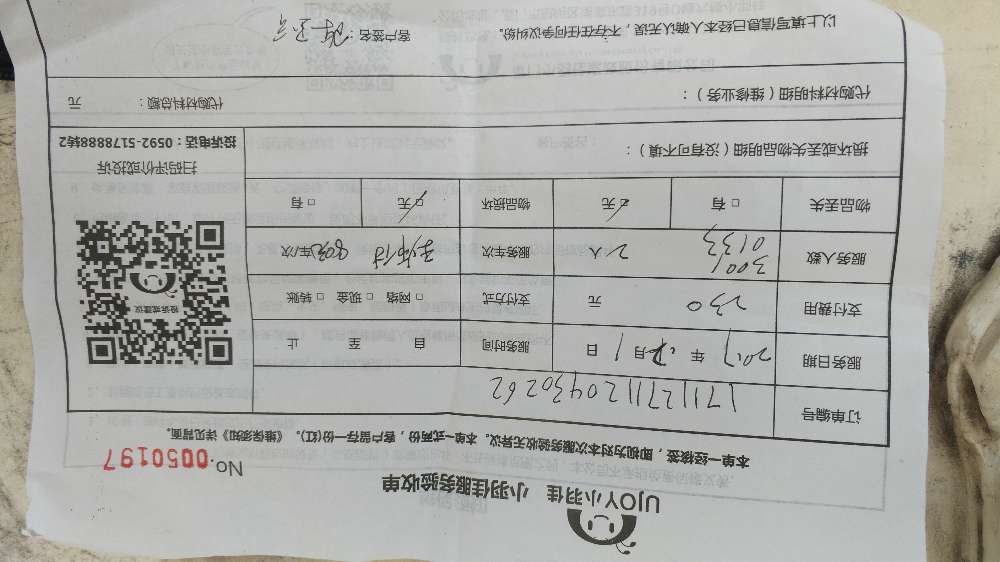 UJOY小羽佳 小羽佳服务验收单
No.0050197
本单一经核签，即视为对本次服务验收无异议。本单一式两份，客户留存一份(红)。《维保须知》详见背面。
订单编号 17112711204930262
服务日期 2017 年 12 月 1 日 服务时间 自 至 止
支付费用 230 元 支付方式 □ 网络 □ 现金 □ 转账
服务人数 3006 0133 2 人 服务车次 车/次
物品丢失 □ 有 □ 无 物品损坏 □ 无 □ 有
投诉或建议
扫码评价或投诉
投诉电话：0592-5178888转2
损坏或丢失物品明细（没有可不填）：
代购材料明细（维修业务）： 代购材料总额： 元
以上填写信息已经本人确认无误，不存在任何争议纠纷。 客户签名：